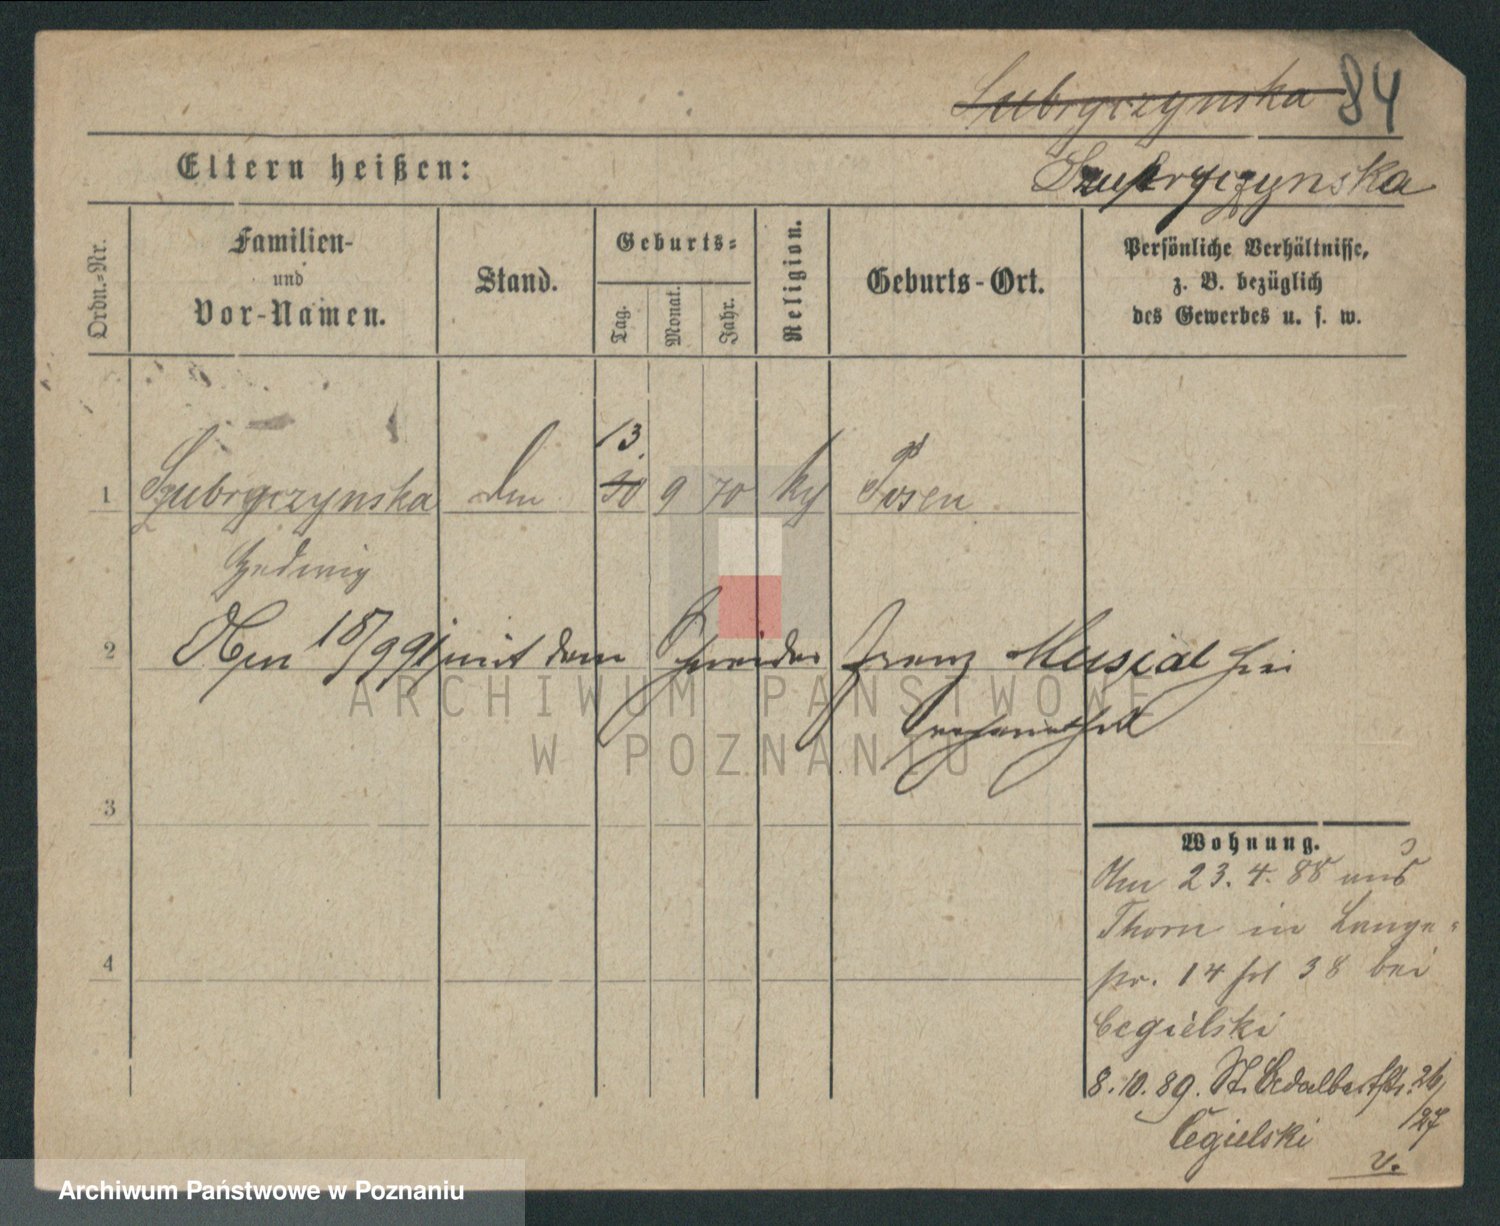 Lubryczynska 84
Eltern heißen:
Szubryczynska
Ordn.-Nr.
Familien-
und
Vor-Namen.
Stand.
Geburts-
Tag.
Monat.
Jahr.
Religion.
Geburts-Ort.
Persönliche Verhältnisse,
z. B. bezüglich
des Gewerbes u. s. w.
13.
1 Szubryczynska 30 9 70 Posen
Hedwig
2 18/9 91 mit dem Franz Musial hier
3
Wohnung.
Am 23. 4. 88 aus
Thorn in Lange-
str. 14 38 bei
4
Cegielski
8. 10. 89. St. Adalbertstr. 26/
Cegielski /27
v.
ARCHIWUM PAŃSTWOWE
W POZNANIU
Archiwum Państwowe w Poznaniu